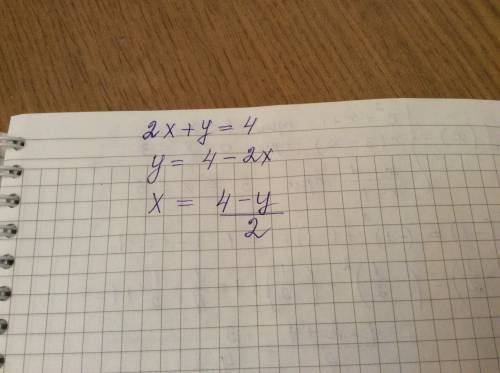 2x+y=4
y= 4-2x
x = (4-y)/2